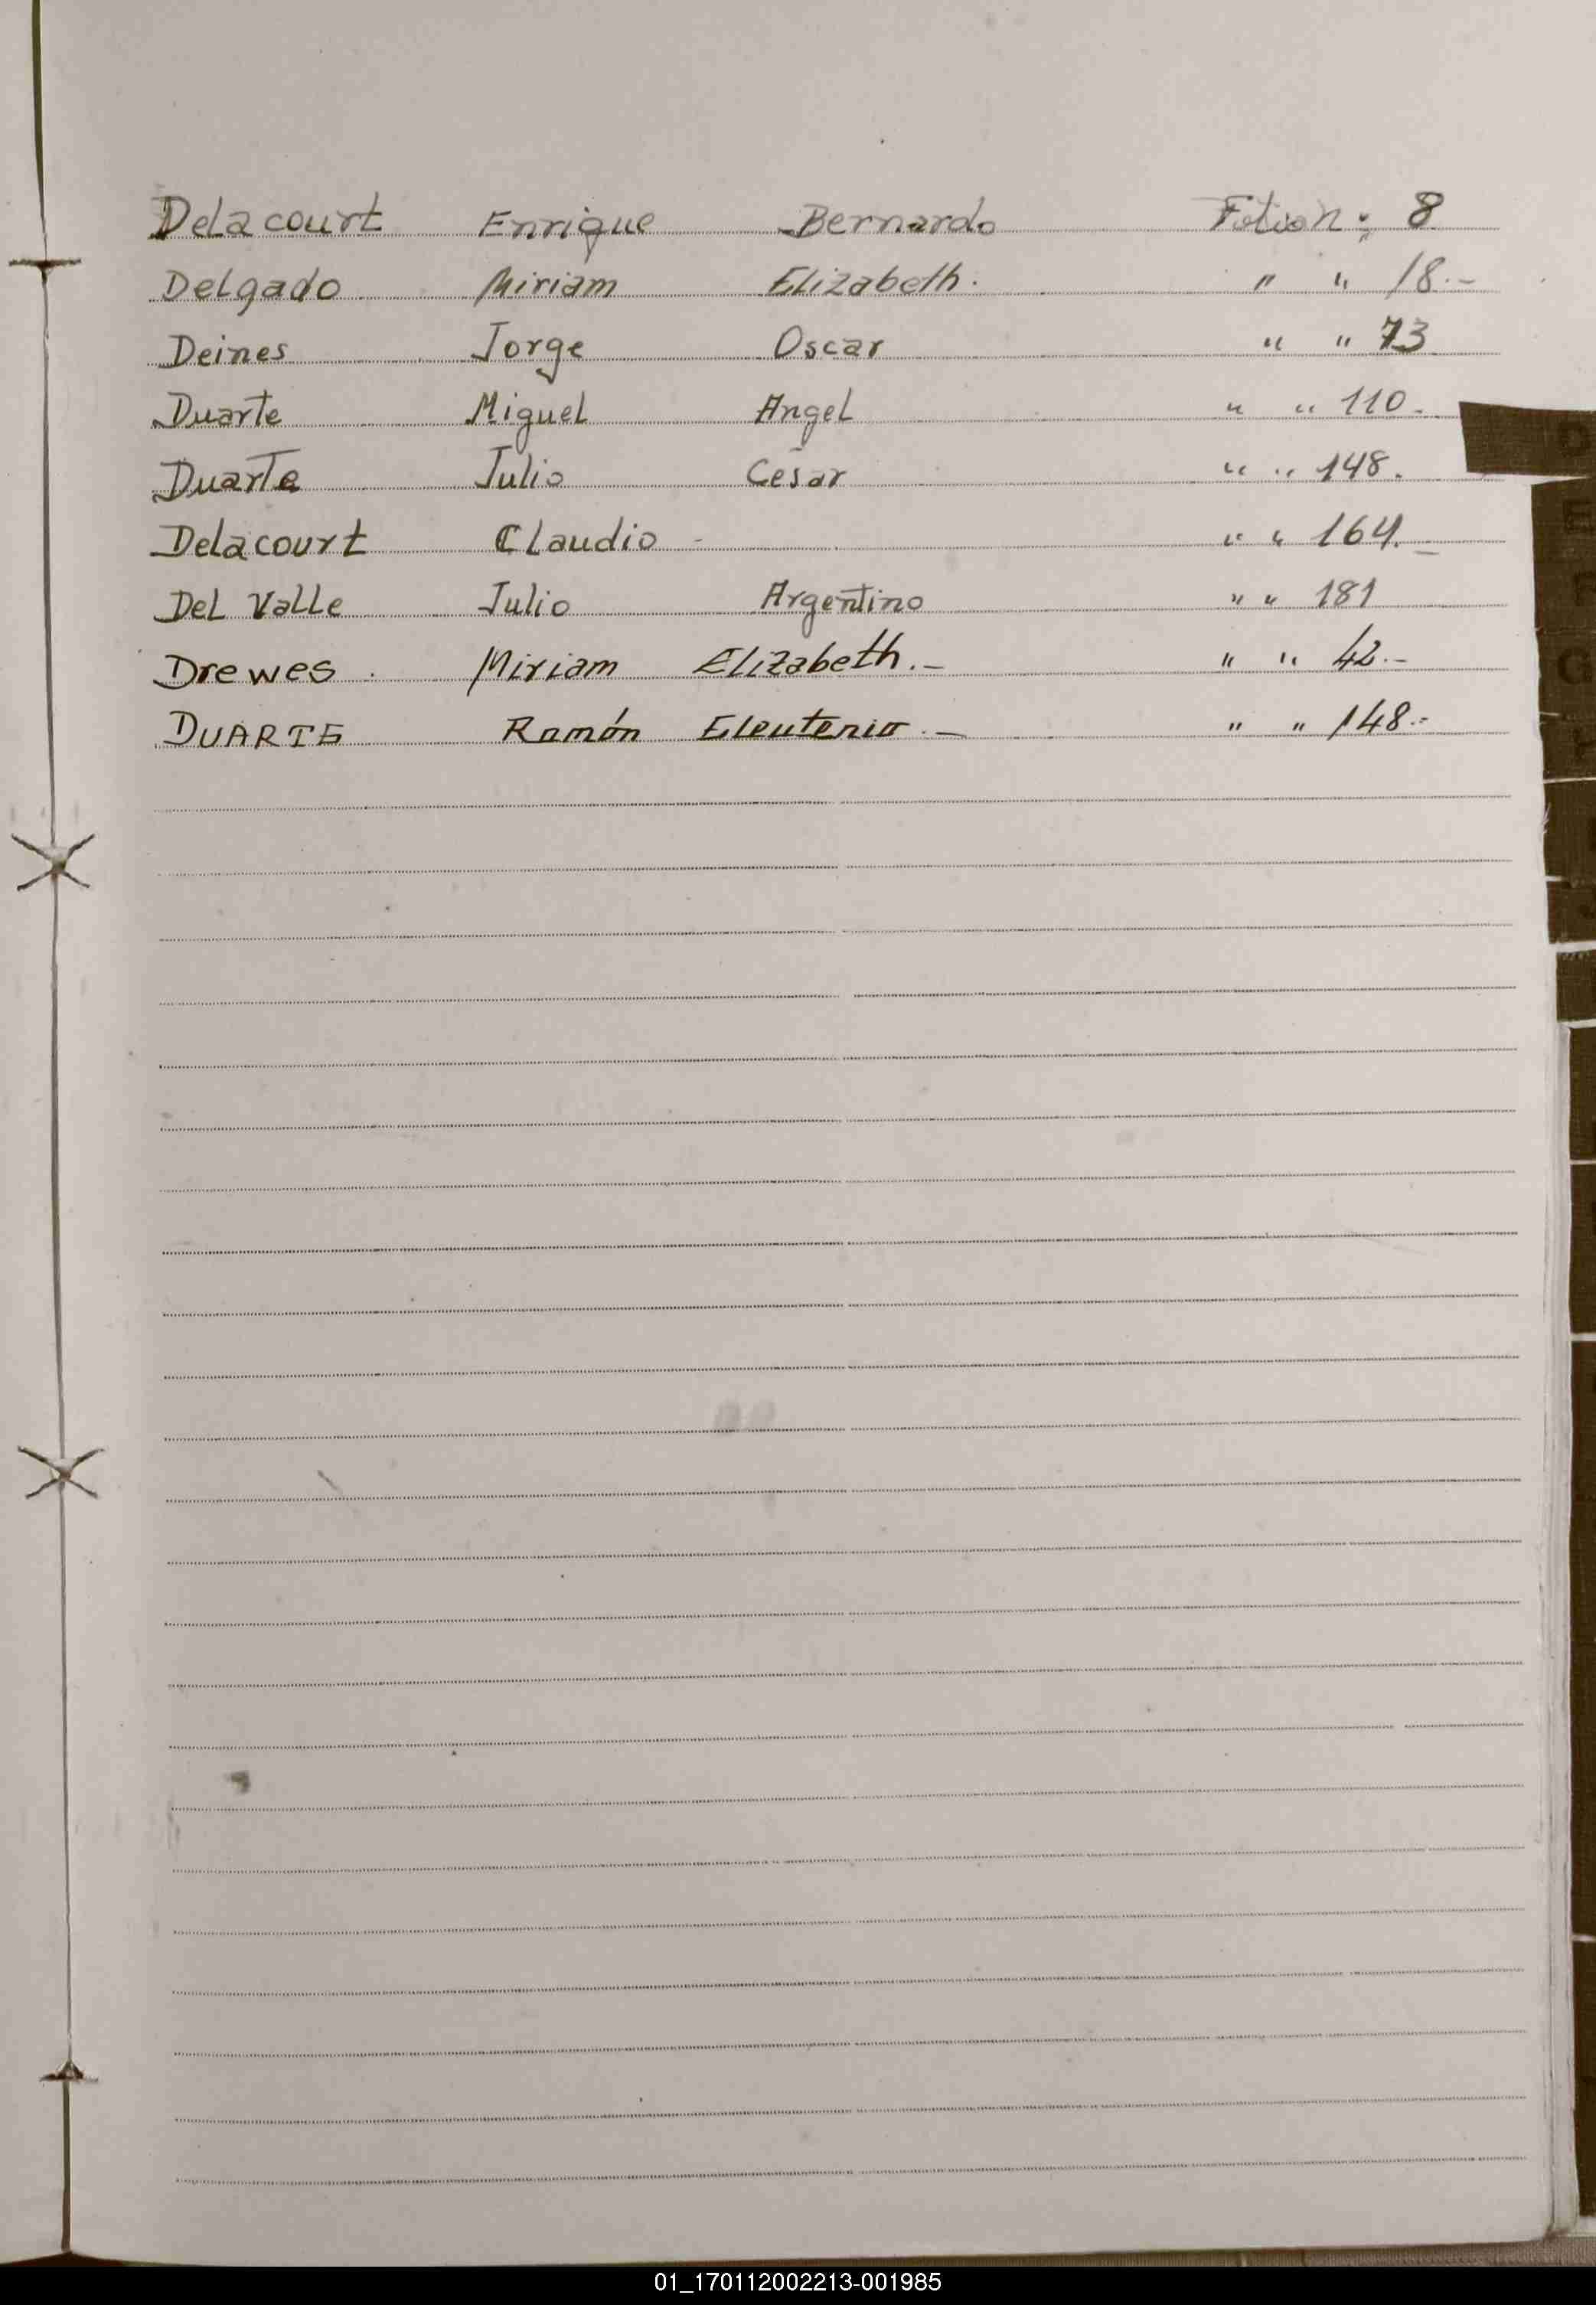 Delacourt Enrique Bernardo : 8
Delgado Miriam Elizabeth. " " 18.-
Deines Jorge Oscar " " 73
Duarte Miguel Angel " " 110.
Duarte Julio César " " 148.
Delacourt Claudio - " " 164.-
Del Valle Julio Argentino " " 181
Drewes. Miriam Elizabeth.- " " 42.-
DUARTE Ramón Eleuterio.- " " 148.-
01_170112002213-001985